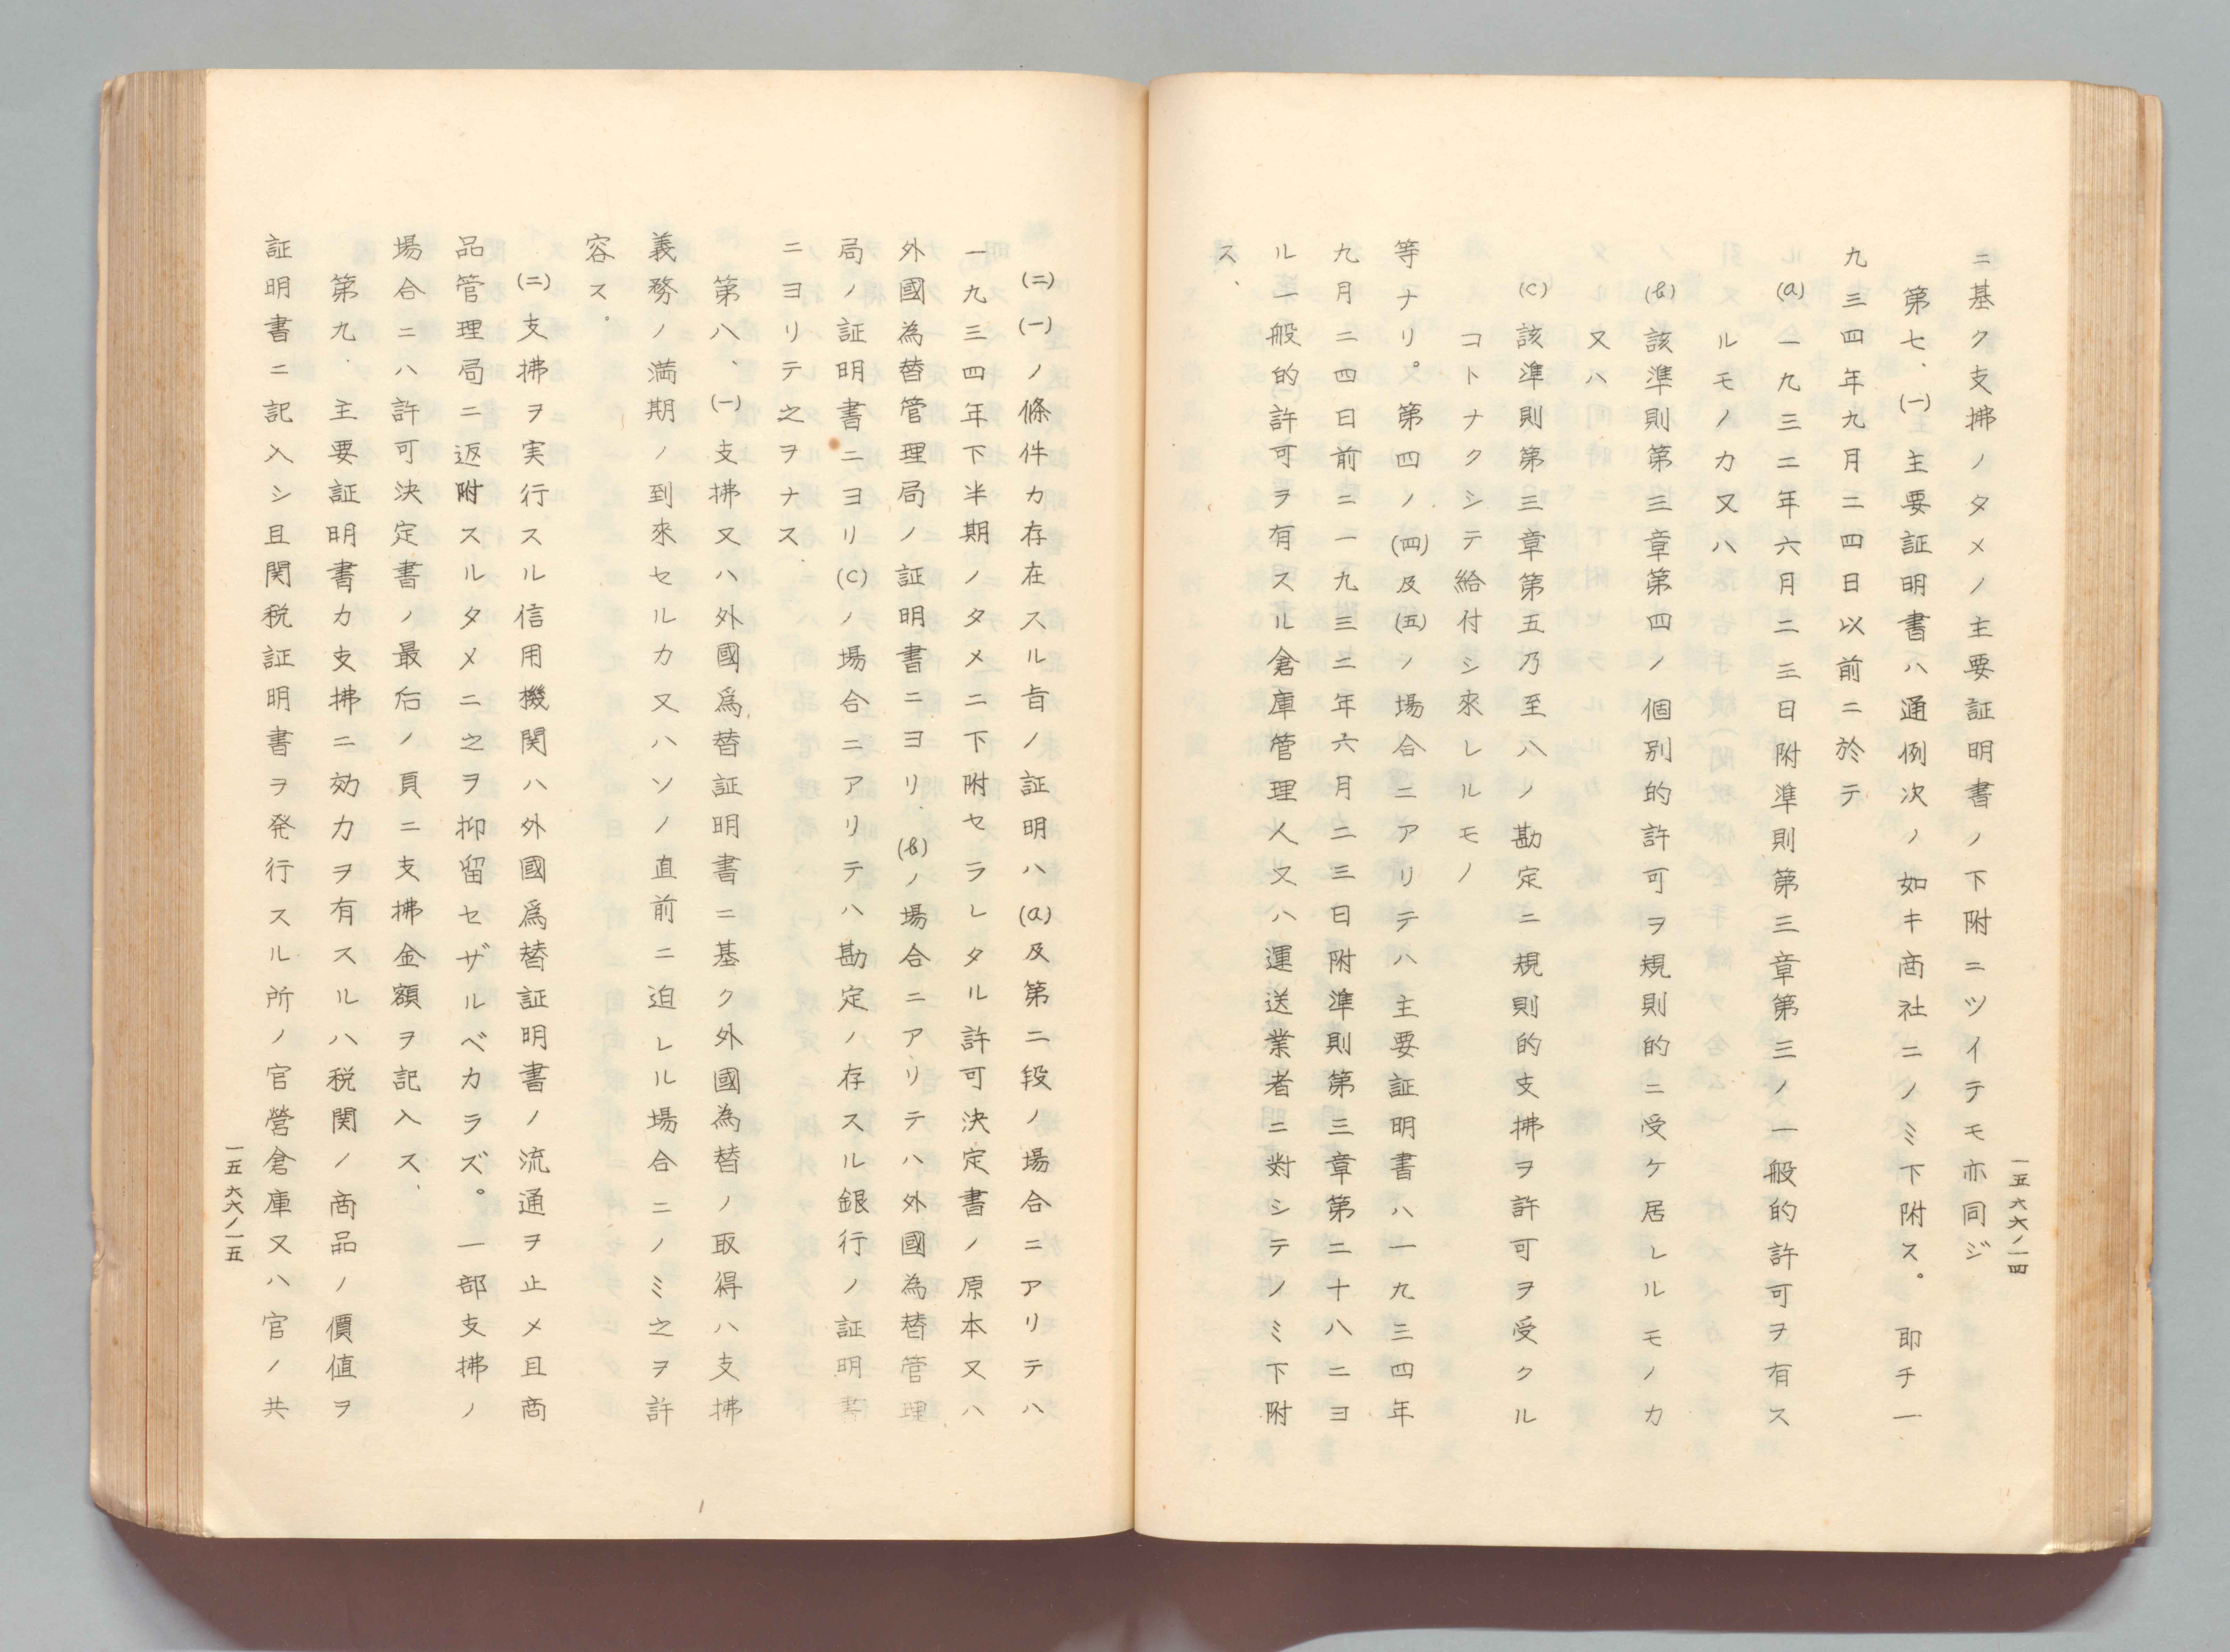 一五六六ノ一四
ニ基ク支拂ノタメノ主要証明書ノ下附ニツイテモ亦同ジ
第七、(一)主要証明書ハ通例次ノ如キ商社ニノミ下附ス。即チ一
九三四年九月二四日以前ニ於テ
(a)一九三二年六月二三日附準則第三章第三ノ一般的許可ヲ有ス
ルモノカ又ハ
(b)該準則第三章第四ノ個別的許可ヲ規則的ニ受ケ居レルモノカ
又ハ
(c)該準則第三章第五乃至八ノ勘定ニ規則的支拂ヲ許可ヲ受クル
コトナクシテ給付シ來レルモノ
等ナリ。第四ノ(四)及(五)ノ場合ニアリテハ主要証明書ハ一九三四年
九月二四日前ニ一九三二年六月二三日附準則第三章第二十八ニヨ
ル一般的許可ヲ有スル倉庫管理人又ハ運送業者ニ対シテノミ下附
ス、
(二)(一)ノ條件カ存在スル旨ノ証明ハ(a)及第二段ノ場合ニアリテハ
一九三四年下半期ノタメニ下附セラレタル許可決定書ノ原本又ハ
外國為替管理局ノ証明書ニヨリ、(b)ノ場合ニアリテハ外國為替管理
局ノ証明書ニヨリ(c)ノ場合ニアリテハ勘定ノ存スル銀行ノ証明書
ニヨリテ之ヲナス
第八、(一)支拂又ハ外國爲替証明書ニ基ク外國為替ノ取得ハ支拂
義務ノ満期ノ到來セルカ又ハソノ直前ニ迫レル場合ニノミ之ヲ許
容ス。
(二)支拂ヲ実行スル信用機関ハ外國爲替証明書ノ流通ヲ止メ且商
品管理局ニ返附スルタメニ之ヲ抑留セザルベカラズ。一部支拂ノ
場合ニハ許可決定書ノ最后ノ頁ニ支拂金額ヲ記入ス、
第九、主要証明書カ支拂ニ効力ヲ有スルハ税関ノ商品ノ價値ヲ
証明書ニ記入シ且関税証明書ヲ発行スル所ノ官営倉庫又ハ官ノ共
一五六六ノ一五